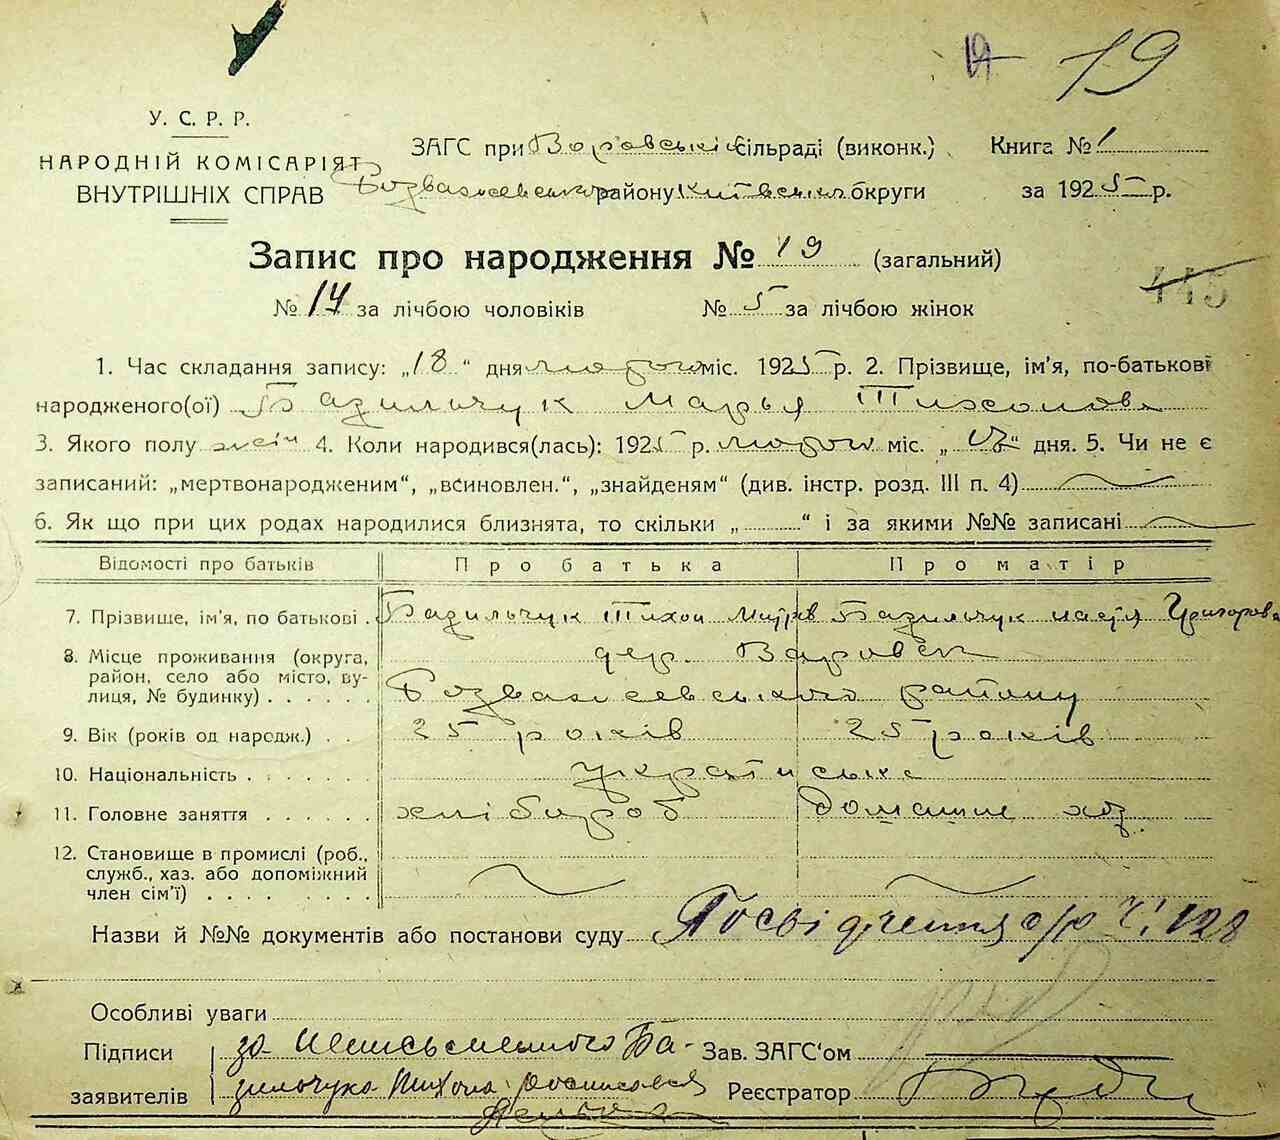 19 19
У. С. Р. Р.
НАРОДНІЙ КОМІСАРІЯТ
ВНУТРІШНІХ СПРАВ
ЗАГС при Воровській сільраді (виконк.) Книга № 1
Розважевського району Київської округи за 1925 р.
Запис про народження № 19 (загальний)
445
№ 14 за лічбою чоловіків № 5 за лічбою жінок
1. Час складання запису: „18“ дня лютого міс. 1925 р. 2. Прізвище, ім'я, по-батькові
народженого(ої) Базильчук Марья Тихонова
3. Якого полу жін 4. Коли народився(лась): 1925 р. лютого міс. „17“ дня. 5. Чи не є
записаний: „мертвонародженим“, „всиновлен.“, „знайденям“ (див. інстр. розд. III п. 4)
6. Як що при цих родах народилися близнята, то скільки „ “ і за якими №№ записані
Відомості про батьків Про батька Про матір
7. Прізвище, ім'я, по батькові . Базильчук Тихон Митров Базильчук настя Григорова
8. Місце проживання (округа, дер. Варовск
район, село або місто, ву-
лиця, № будинку) . . . . . . Розважевського району
9. Вік (років од народж.) . . 25 років 25 років
10. Національність . . . . . . українська
11. Головне заняття . . . . . . хлібороб домашнє хоз.
12. Становище в промислі (роб.,
служб., хаз. або допоміжний
член сім'ї) . . . . . . . .
Назви й №№ документів або постанови суду Посвідчення с/р Ч. 128
Особливі уваги
Підписи за неписьменного Ба- Зав. ЗАГС'ом
заявителів зильчука Тихона росписався Реєстратор